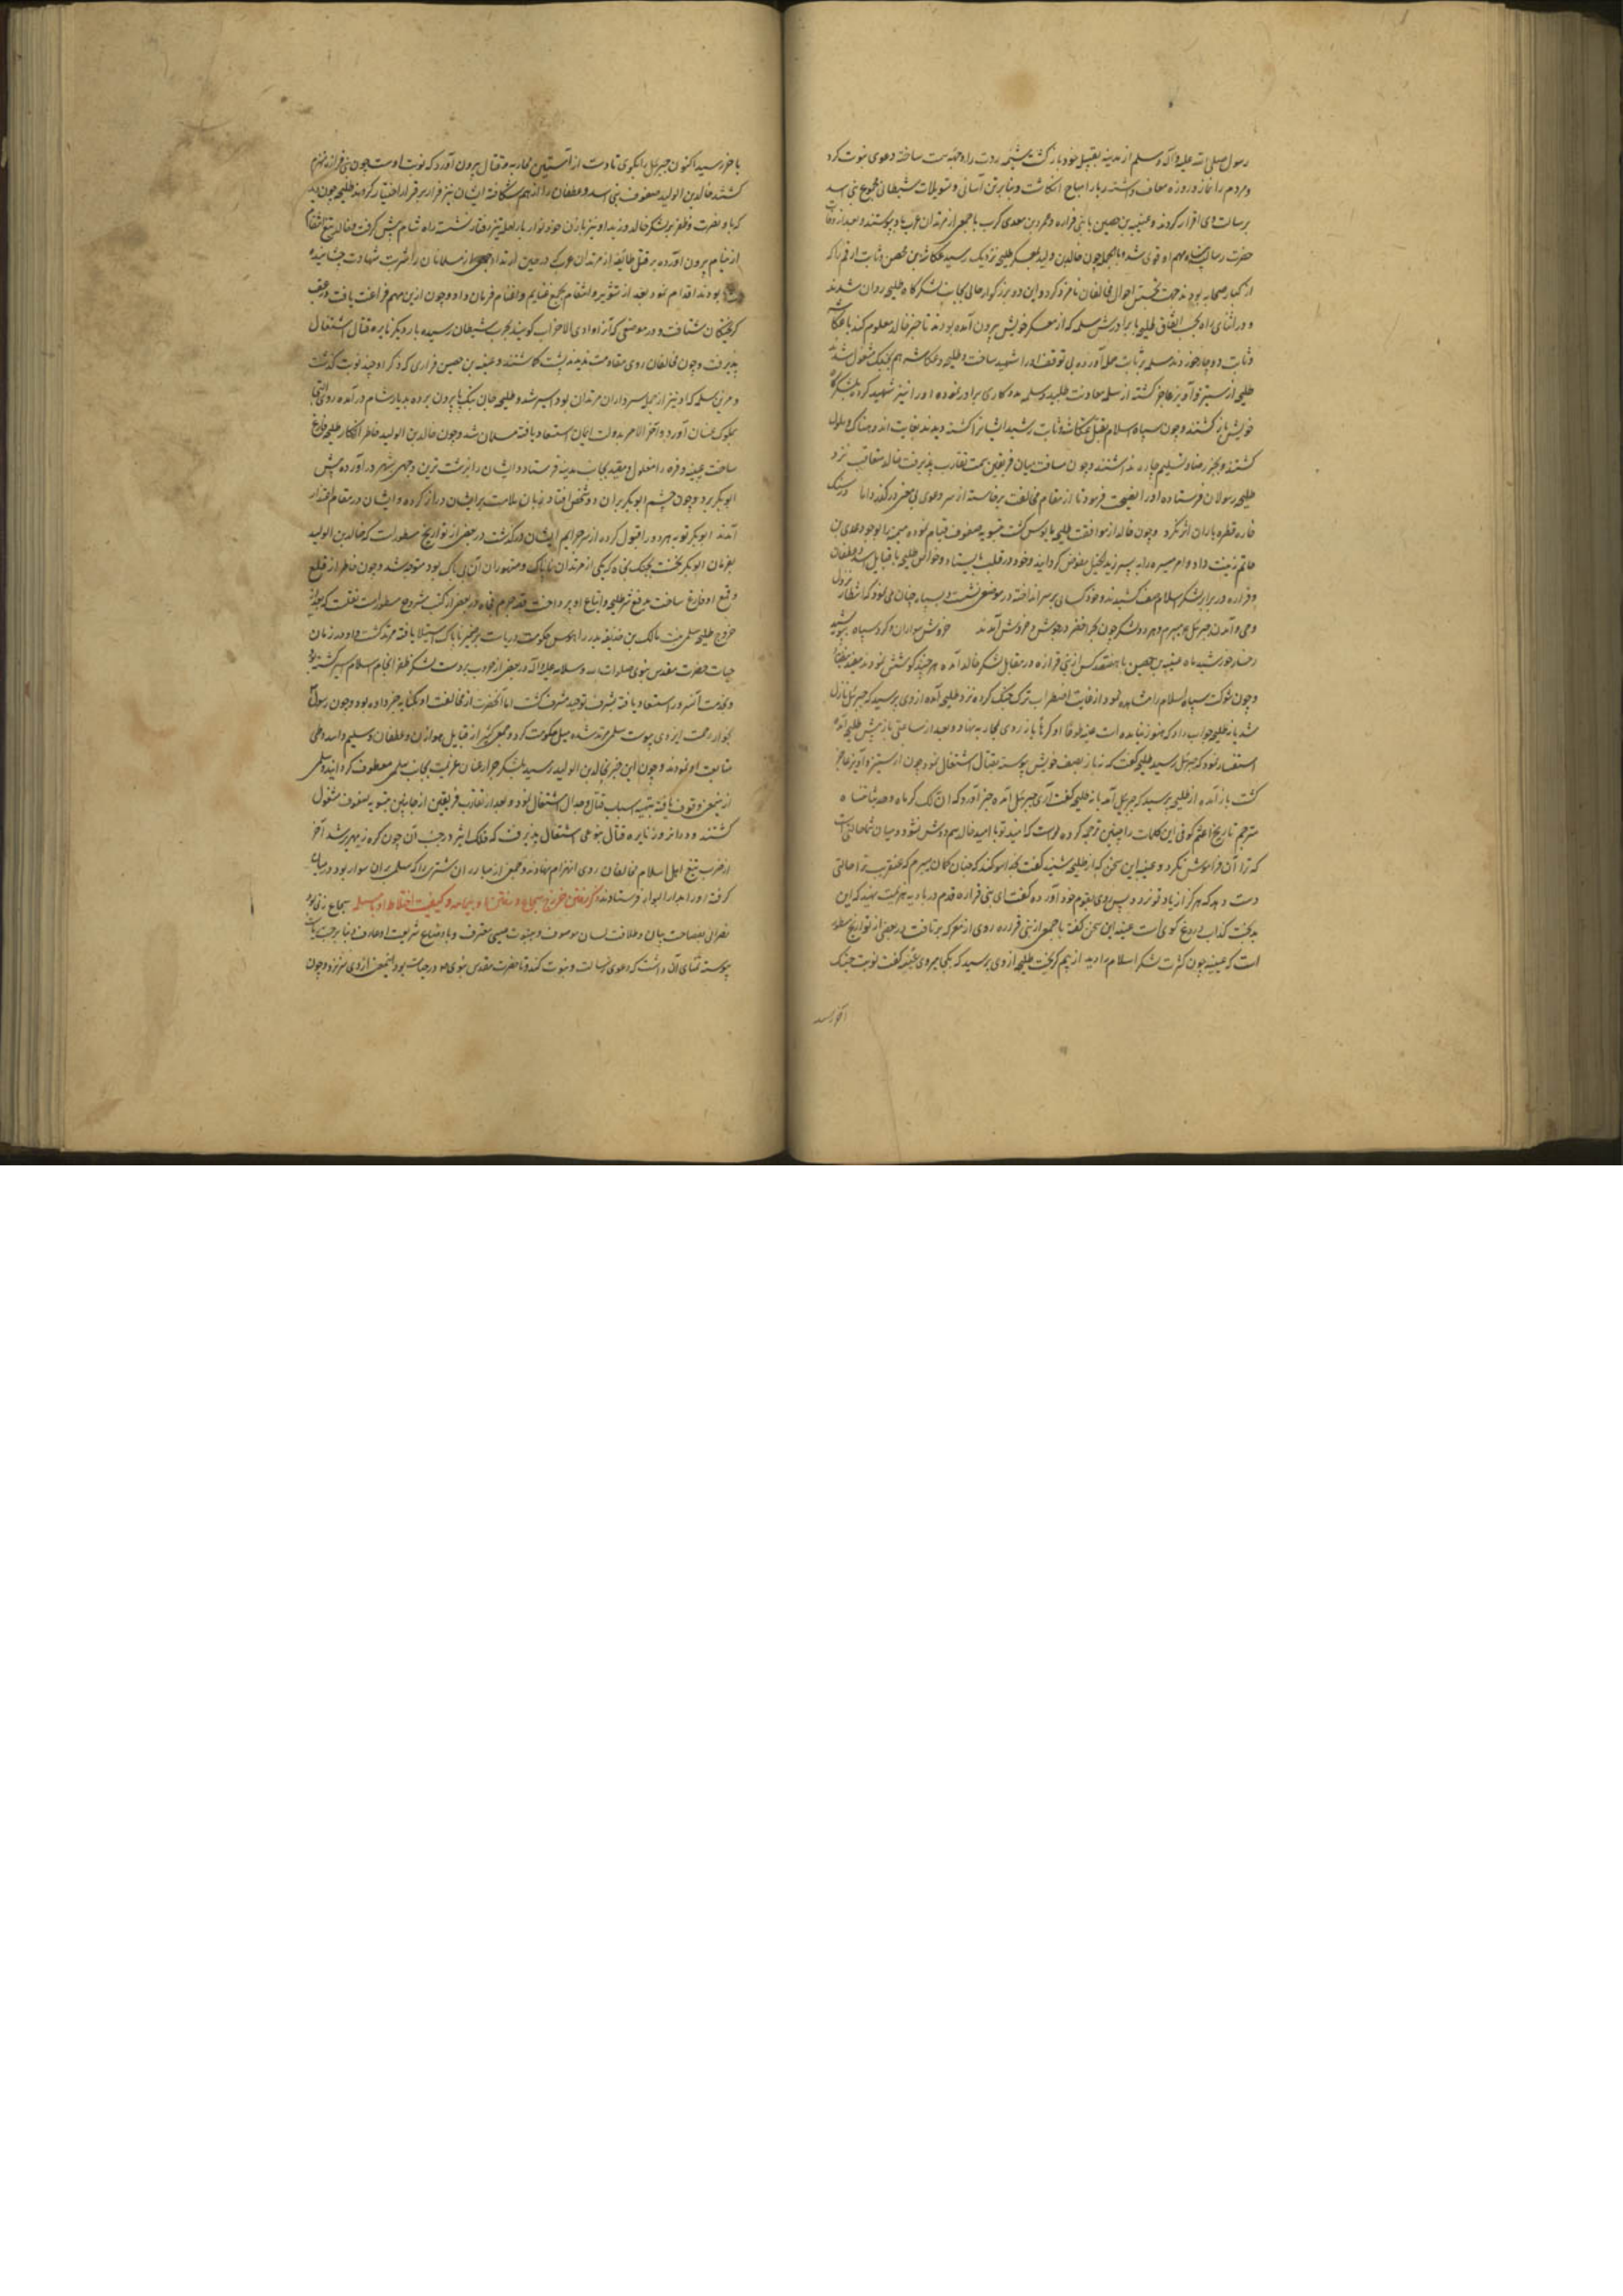 رسول صلی الله علیه وآله وسلم از مدینه بقبیله خود باز کشت شیمه ردت را وجهه همت ساخته دعوی نبوت کرد
ومردم را از نماز وروزه معاف داشته ربا را مباح انکاشت وبنابر تن آسانی وتسویلات شیطانی مجموع بنی اسد
برسالت وی اقرار کردند وعیینه بن حصین با بنی فزاره وعمرو بن معدی کرب با جمعی از مرتدان عرب باو پیوستند وبعد از وفات
حضرت رسالت پناه مهم او قوی شد وبالجمله چون خالد بن ولید بمعسکر طلیحه نزدیک رسید عکاشه بن محصن وثابت بن ارقم را که
از کبار صحابه بودند جهت تجسس احوال مخالفان نامزد کرد واین دو بزرگوار عالی بجانب لشکرگاه طلیحه روان شدند
ودر اثنای راه بحسب اتفاق طلیحه با برادرش سلمه که از معسکر خویش بیرون آمده بودند تا خبر خالد معلوم کنند با عکاشه
وثابت دوچار خوردند سلمه بر ثابت حمله آورده بی توقف او را شهید ساخت وطلیحه وعکاشه هم بجنک مشغول شدند
طلیحه از ستیز وآویز عاجز کشته از سلمه معاونت طلبید وسلمه مددکاری برادر نموده او را نیز شهید کرده بلشکرگاه
خویش باز کشتند وچون سپاه اسلام بقتل عکاشه وثابت رسید ایشانرا کشته دیدند بغایت اندوهناک وملول
کشتند وبجز رضا وتسلیم چاره نداشتند وچون مسافت میان فریقین سمت تقارب پذیرفت خالد متعاقب نزد
طلیحه رسولان فرستاده او را نصیحت فرمود تا از مقام مخالفت برخاسته از سر دعوی بی معنی درگذرد اما در سنک
خاره قطره باران اثر نکرد وچون خالد از موافقت طلیحه مایوس کشت بتسویه صفوف قیام نموده میمنه را بوجود عدی بن
حاتم زینت داد وامر میسره را به پسر زید الخیل مفوض کردانید وخود در قلب بایستاد وخواص طلیحه با قبایل اسد وغطفان
وفزاره در برابر لشکر اسلام صف کشیدند وخود کسائی بر سر انداخته در موضعی نشست وبسپاه چنان می نمود که انتظار نزول
وحی وآمدن جبرئیل می برم وهر دو لشکر چون بحر اخضر در جوش وخروش آمدند خروش سواران وکرد سپاه بپوشید
رخسار خورشید وماه عیینه بن حصین با هفتصد کس از بنی فزاره در مقابل لشکر خالد آمده هر چند کوشش نمودند مفید نیفتاد
وچون شوکت سپاه اسلام را مشاهده نمود از غایت اضطراب ترک جنک کرده نزد طلیحه آمده از وی پرسید که جبرئیل نازل
شد یا نه طلیحه جواب داد که هنوز نیامده است عیینه طوعا او کرها باز روی بمحاربه نهاد وبعد از ساعتی باز پیش طلیحه آمده
استفسار نمود که جبرئیل رسید طلیحه گفت که نه باز بصف خویش پیوسته بقتال اشتغال نمود چون از ستیز وآویز عاجز
کشت باز آمده از طلیحه پرسید که جبرئیل آمد یا نه طلیحه گفت آری جبرئیل آمده خبر آورد که ان لک
مترجم تاریخ اعثم کوفی این کلمات را چنین ترجمه کرده است که امید تو با امید خالد هم دوش نشود ومیان شما حالتی است
که ترا آن فراموش نکردد وعیینه این سخن که از طلیحه شنید گفت بخدا سوکند که چنان کمان میبرم که عنقریب ترا حالتی
دست دهد که هرگز از یاد تو نرود پس روی بقوم خود آورده گفت ای بنی فزاره قدم در بادیه هزیمت نهید که این
بدبخت کذاب دروغ کوی است عیینه این سخن گفته با جمعی از بنی فزاره روی از معرکه برتافت ودر بعضی از تواریخ مسطور
است که عیینه چون کثرت لشکر اسلام را دید از بیم بگریخت طلیحه از وی پرسید که بکجا میروی عیینه گفت نوبت جنک
بآخر رسید
بآخر رسید اکنون جبرئیل را بگوی تا دست از آستین محاربه وقتال بیرون آورد که نوبت اوست چون بنی فزاره منهزم
کشتند خالد بن الولید صفوف بنی اسد وغطفان را از هم شکافته ایشان نیز فرار بر قرار اختیار کردند طلیحه چون دید
که باد نصرت وظفر بر لشکر خالد وزید او نیز با زن خود نوار بر راحله تیز رفتار نشست وراه شام پیش کرفت وخالد تیغ انتقام
از نیام بیرون آورده بر قتل طائفه از مرتدان عرب که در حین ارتداد جمعی از مسلمانان را شربت شهادت چشانیده
بودند اقدام نمود وبعد از بجمع غنایم واغتنام فرمان داد وچون از این مهم فراغت یافت در عقب
کریختکان شتافت ودر موضعی که آنرا وادی الاحزاب کویند بحزب شیطان رسیده بار دیگر نایره قتال اشتعال
پذیرفت وچون مخالفان روی مقاومت ندیدند پشت کاشتند وعیینه بن حصین فزاری که ذکر او چند نوبت کذشت
وقره بن سلمه که او نیز از جمله سرداران مرتدان بود اسیر شد وطلیحه جان بتک پا بیرون برده بدیار شام در آمده روی التجا
بملوک غسان آورد وآخر الامر بدولت ایمان استسعاد یافته مسلمان شد وچون خالد بن الولید خاطر از کار طلیحه فارغ
ساخت عیینه وقره را مغلول ومقید بجانب مدینه فرستاد وایشان را بزشت ترین وجهی بشهر در آورده پیش
ابوبکر برد وچون چشم ابوبکر بر آن دو شخص افتاد زبان ملامت بر ایشان دراز کرده وایشان در مقام اعتذار
آمدند ابوبکر توبه هر دو را قبول کرده از سر جرایم ایشان درگذشت در بعضی از تواریخ مسطور است که خالد بن الولید
بفرمان ابوبکر نخست بجنک فجاه که یکی از مرتدان ناپاک ومتهوران آن بی باک بود متوجه شد وچون خاطر از قلع
وقمع او فارغ ساخت بدفع شر طلیحه واتباع او پرداخت وقصه جرم فجاه در بعضی از کتب مشروح مسطور است نقلست که بعد از
خروج طلیحه سلمی بنت مالک بن حذیفه بن بدر را هوس حکومت وریاست بر ضمیر ناپاک استیلا یافته مرتد کشت واو در زمان
حیات حضرت مقدس نبوی صلوات الله وسلامه علیه وآله در بعضی از حروب بر دست لشکر ظفر انجام اسلام اسیر کشته بود
وبخدمت آنسرور استسعاد یافته بشرف توحید مشرف کشت اما آنحضرت از مخالفت او بکنایه خبر داده بود وچون رسول
بجوار رحمت ایزدی پیوست سلمی مرتد شده میل حکومت کرد وجمعی کثیر از قبایل هوازن وغطفان وسلیم واسد وطی
متابعت او نمودند وچون این خبر بخالد بن الولید رسید با لشکر جرار عنان عزیمت بجانب سلمی معطوف کردانید وسلمی
از این معنی وقوف یافته بتهیه اسباب قتال وجدال اشتغال نمود وبعد از تقارب فریقین از جانبین بتسویه صفوف مشغول
کشتند ودر آنروز نایره قتال بنوعی اشتعال پذیرفت که فلک اثیر در جنب آن چون کره زمهریر شد آخر
از ضرب تیغ اهل اسلام مخالفان روی بانهزام نهادند وجمعی از مبارزان شتری را که سلمی بر آن سوار بود در میان
کرفته او را بدار البوار فرستادند ذکر رفتن خروج سجاح ورفتن او بیمامه وکیفیت اختلاط او با مسیلمه سجاح زنی بود
نصرانی بفصاحت بیان وطلاقت لسان موصوف وبنبوت عیسی معترف وباوضاع شریعت او عارف وبنابر حب ریاست
پیوسته تمنای آن داشت که دعوی رسالت ونبوت کند وتا حضرت مقدس نبوی در حیات بود اینمعنی از وی سر نزد وچون